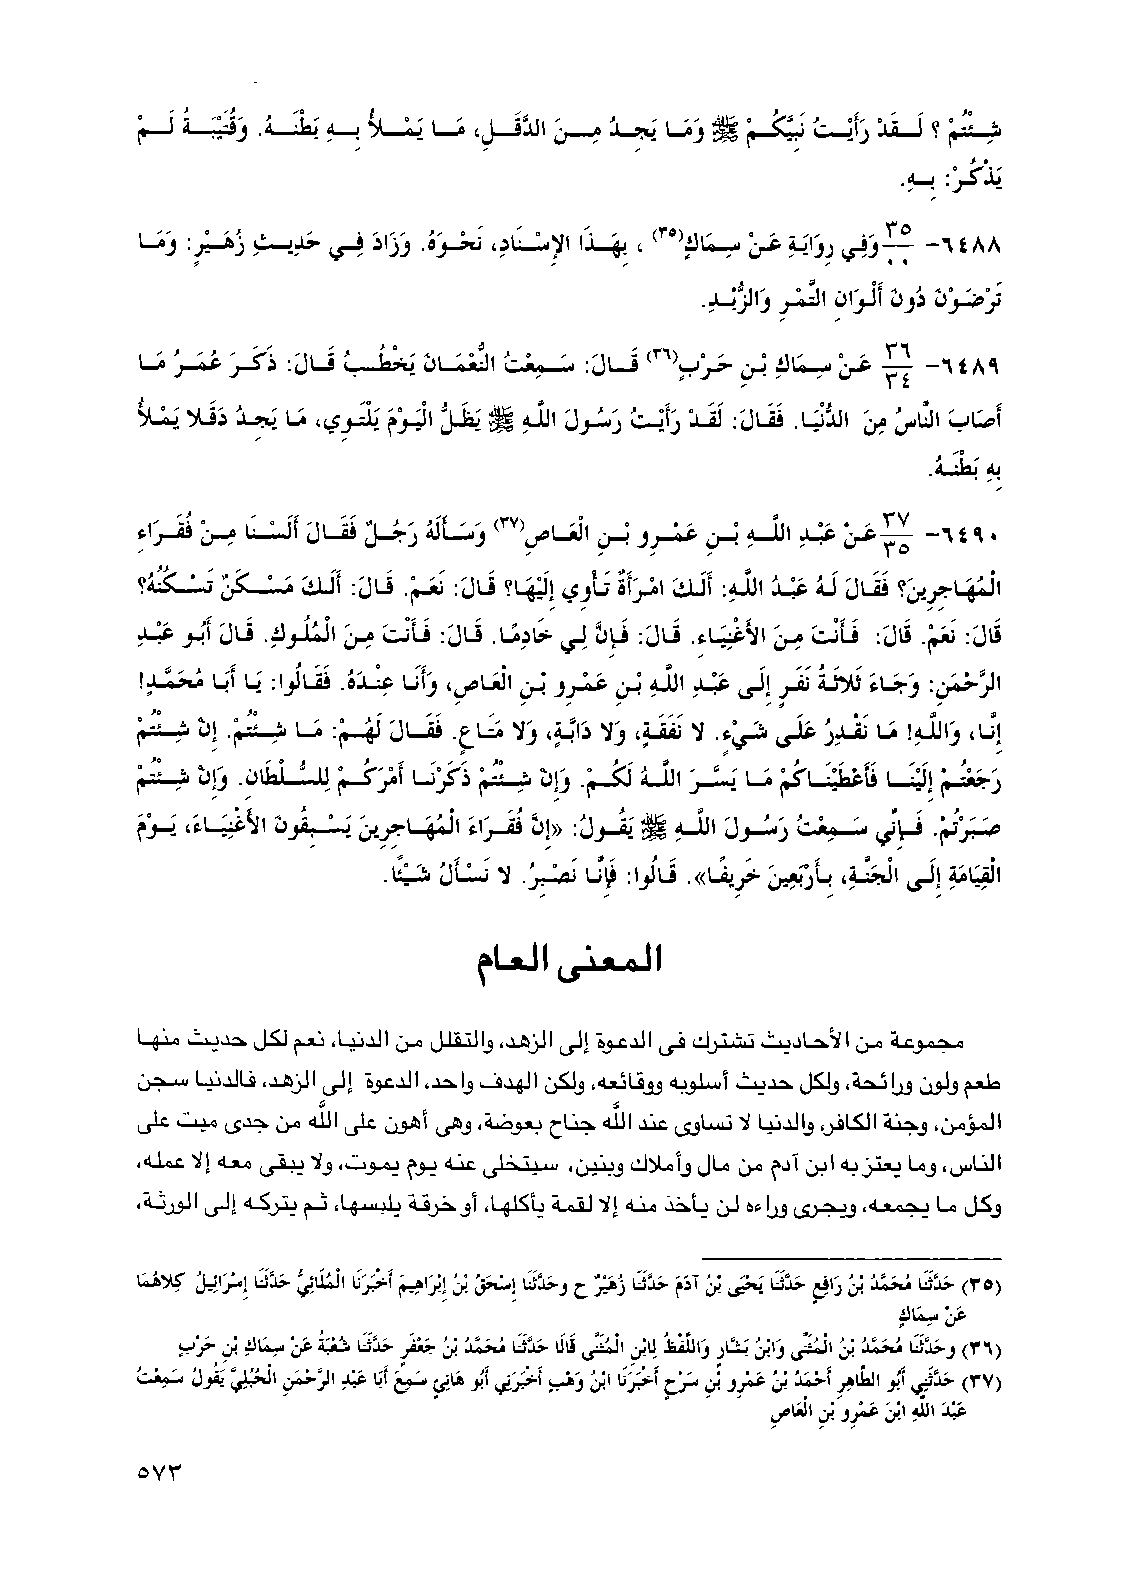 شِئْتُمْ ؟ لَقَدْ رَأَيْتُ نَبِيَّكُمْ ﷺ وَمَا يَجِدُ مِنَ الدَّقَلِ، مَا يَمْلأُ بِهِ بَطْنَهُ. وَقُتَيْبَةُ لَمْ
يَذْكُرْ: بِهِ.
٦٤٨٨- ٣٥/٠٠ وَفِي رِوَايَةٍ عَنْ سِمَاكٍ(٣٥) ، بِهَذَا الإِسْنَادِ، نَحْوَهُ. وَزَادَ فِي حَدِيثِ زُهَيْرٍ: وَمَا
تَرْضَوْنَ دُونَ أَلْوَانِ التَّمْرِ وَالزُّبْدِ.
٦٤٨٩- ٣٦/٣٤ عَنْ سِمَاكِ بْنِ حَرْبٍ(٣٦) قَالَ: سَمِعْتُ النُّعْمَانَ يَخْطُبُ قَالَ: ذَكَرَ عُمَرُ مَا
أَصَابَ النَّاسُ مِنَ الدُّنْيَا. فَقَالَ: لَقَدْ رَأَيْتُ رَسُولَ اللَّهِ ﷺ يَظَلُّ الْيَوْمَ يَلْتَوِي، مَا يَجِدُ دَقَلا يَمْلأُ
بِهِ بَطْنَهُ.
٦٤٩٠- ٣٧/٣٥ عَنْ عَبْدِ اللَّهِ بْنِ عَمْرِو بْنِ الْعَاصِ(٣٧) وَسَأَلَهُ رَجُلٌ فَقَالَ أَلَسْنَا مِنْ فُقَرَاءِ
الْمُهَاجِرِينَ؟ فَقَالَ لَهُ عَبْدُ اللَّهِ: أَلَكَ امْرَأَةٌ تَأْوِي إِلَيْهَا؟ قَالَ: نَعَمْ. قَالَ: أَلَكَ مَسْكَنٌ تَسْكُنُهُ؟
قَالَ: نَعَمْ. قَالَ: فَأَنْتَ مِنَ الأَغْنِيَاءِ. قَالَ: فَإِنَّ لِي خَادِمًا. قَالَ: فَأَنْتَ مِنَ الْمُلُوكِ. قَالَ أَبُو عَبْدِ
الرَّحْمَنِ: وَجَاءَ ثَلاثَةُ نَفَرٍ إِلَى عَبْدِ اللَّهِ بْنِ عَمْرِو بْنِ الْعَاصِ، وَأَنَا عِنْدَهُ. فَقَالُوا: يَا أَبَا مُحَمَّدٍ!
إِنَّا، وَاللَّهِ! مَا نَقْدِرُ عَلَى شَيْءٍ. لا نَفَقَةٍ، وَلا دَابَّةٍ، وَلا مَتَاعٍ. فَقَالَ لَهُمْ: مَا شِئْتُمْ. إِنْ شِئْتُمْ
رَجَعْتُمْ إِلَيْنَا فَأَعْطَيْنَاكُمْ مَا يَسَّرَ اللَّهُ لَكُمْ. وَإِنْ شِئْتُمْ ذَكَرْنَا أَمْرَكُمْ لِلسُّلْطَانِ. وَإِنْ شِئْتُمْ
صَبَرْتُمْ. فَإِنِّي سَمِعْتُ رَسُولَ اللَّهِ ﷺ يَقُولُ: «إِنَّ فُقَرَاءَ الْمُهَاجِرِينَ يَسْبِقُونَ الأَغْنِيَاءَ، يَوْمَ
الْقِيَامَةِ إِلَى الْجَنَّةِ، بِأَرْبَعِينَ خَرِيفًا». قَالُوا: فَإِنَّا نَصْبِرُ. لا نَسْأَلُ شَيْئًا.
المعنى العام
مجموعة من الأحاديث تشترك فى الدعوة إلى الزهد، والتقلل من الدنيا، نعم لكل حديث منها
طعم ولون ورائحة، ولكل حديث أسلوبه ووقائعه، ولكن الهدف واحد، الدعوة إلى الزهد، فالدنيا سجن
المؤمن، وجنة الكافر، والدنيا لا تساوى عند اللَّه جناح بعوضة، وهى أهون على اللَّه من جدى ميت على
الناس، وما يعتز به ابن آدم من مال وأملاك وبنين، سيتخلى عنه يوم يموت، ولا يبقى معه إلا عمله،
وكل ما يجمعه، ويجرى وراءه لن يأخذ منه إلا لقمة يأكلها، أو خرقة يلبسها، ثم يتركه إلى الورثة،
(٣٥) حَدَّثَنَا مُحَمَّدُ بْنُ رَافِعٍ حَدَّثَنَا يَحْيَى بْنُ آدَمَ حَدَّثَنَا زُهَيْرٌ ح وحَدَّثَنَا إِسْحَقُ بْنُ إِبْرَاهِيمَ أَخْبَرَنَا الْمُلَائِيُّ حَدَّثَنَا إِسْرَائِيلُ كِلَاهُمَا
عَنْ سِمَاكٍ
(٣٦) وحَدَّثَنَا مُحَمَّدُ بْنُ الْمُثَنَّى وَابْنُ بَشَّارٍ وَاللَّفْظُ لِابْنِ الْمُثَنَّى قَالَا حَدَّثَنَا مُحَمَّدُ بْنُ جَعْفَرٍ حَدَّثَنَا شُعْبَةُ عَنْ سِمَاكِ بْنِ حَرْبٍ
(٣٧) حَدَّثَنِي أَبُو الطَّاهِرِ أَحْمَدُ بْنُ عَمْرِو بْنِ سَرْحٍ أَخْبَرَنَا ابْنُ وَهْبٍ أَخْبَرَنِي أَبُو هَانِئٍ سَمِعَ أَبَا عَبْدِ الرَّحْمَنِ الْحُبُلِيَّ يَقُولُ سَمِعْتُ
عَبْدَ اللَّهِ ابْنَ عَمْرِو بْنِ الْعَاصِ
٥٧٣